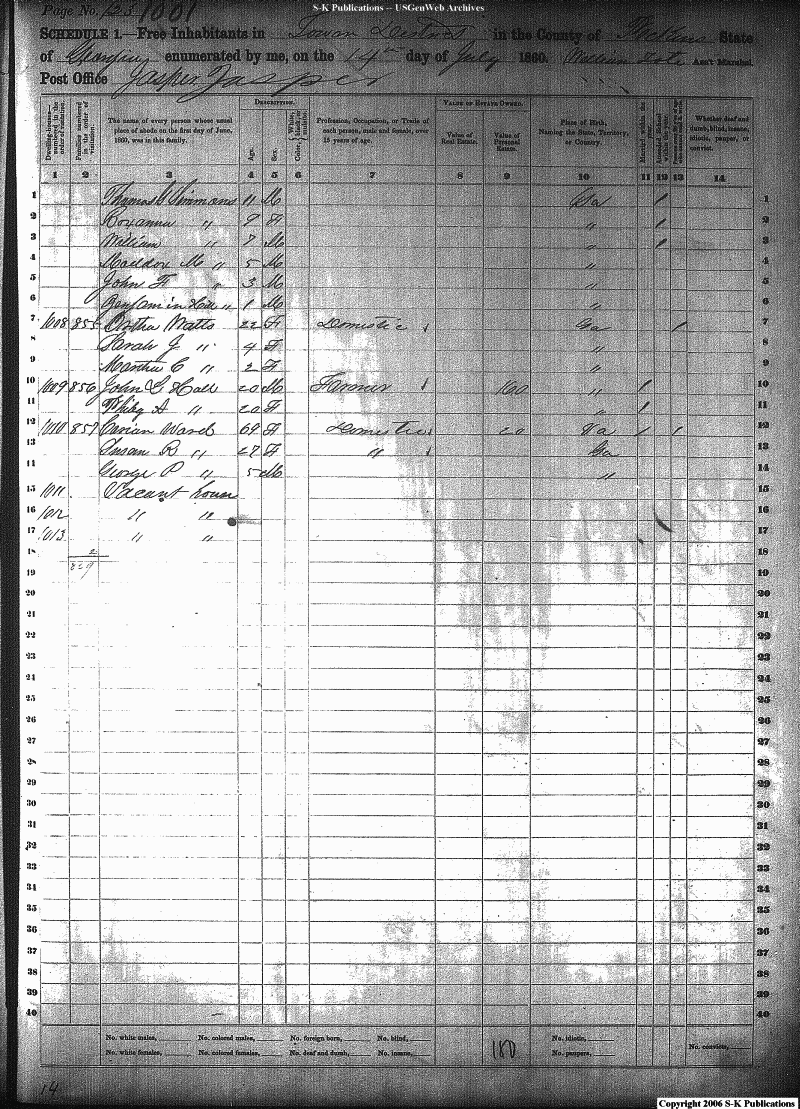 S-K Publications -- USGenWeb Archives
Page No. 123 1001
SCHEDULE 1.—Free Inhabitants in Town District in the County of Pickens State
of Georgia enumerated by me, on the 14th day of July 1860. William Tate Ass't Marshal.
Post Office Jasper Jasper
Dwelling-houses numbered in the order of visitation.
Families numbered in the order of visitation.
The name of every person whose usual place of abode on the first day of June, 1860, was in this family.
DESCRIPTION.
Age.
Sex.
Color, White, black, or mulatto.
Profession, Occupation, or Trade of each person, male and female, over 15 years of age.
VALUE OF ESTATE OWNED.
Value of Real Estate.
Value of Personal Estate.
Place of Birth, Naming the State, Territory, or Country.
Married within the year.
Attended School within the year.
Whether deaf and dumb, blind, insane, idiotic, pauper, or convict.
1 2 3 4 5 6 7 8 9 10 11 12 13 14
1 Thomas Simmons 11 M Ga / 1
2 Roxanna " 9 F " / 2
3 William " 7 M " / 3
4 Maddox M " 5 M " 4
5 John F " 3 M " 5
6 Benjamin Hill " 1 M " 6
7 1008 855 Watts 22 F Domestic Ga / 7
8 Sarah J " 4 F " 8
9 Martha C " 2 F " 9
10 1009 856 John G Hall 20 M Farmer 160 " / 10
11 A " 20 F " / 11
12 1010 857 Ward 69 F Domestic 20 Va / / 12
13 Susan R " 27 F " Ga 13
14 George P " 5 M " 14
15 1011 Vacant house 15
16 1012 " " 16
17 1013 " " 17
18 2 18
19 859 19
20 20
21 21
22 22
23 23
24 24
25 25
26 26
27 27
28 28
29 29
30 30
31 31
32 32
33 33
34 34
35 35
36 36
37 37
38 38
39 39
40 40
No. white males, No. colored males, No. foreign born, No. blind, No. idiotic,
No. white females, No. colored females, No. deaf and dumb, No. insane, 180 No. paupers, No. convicts,
14
Copyright 2006 S-K Publications